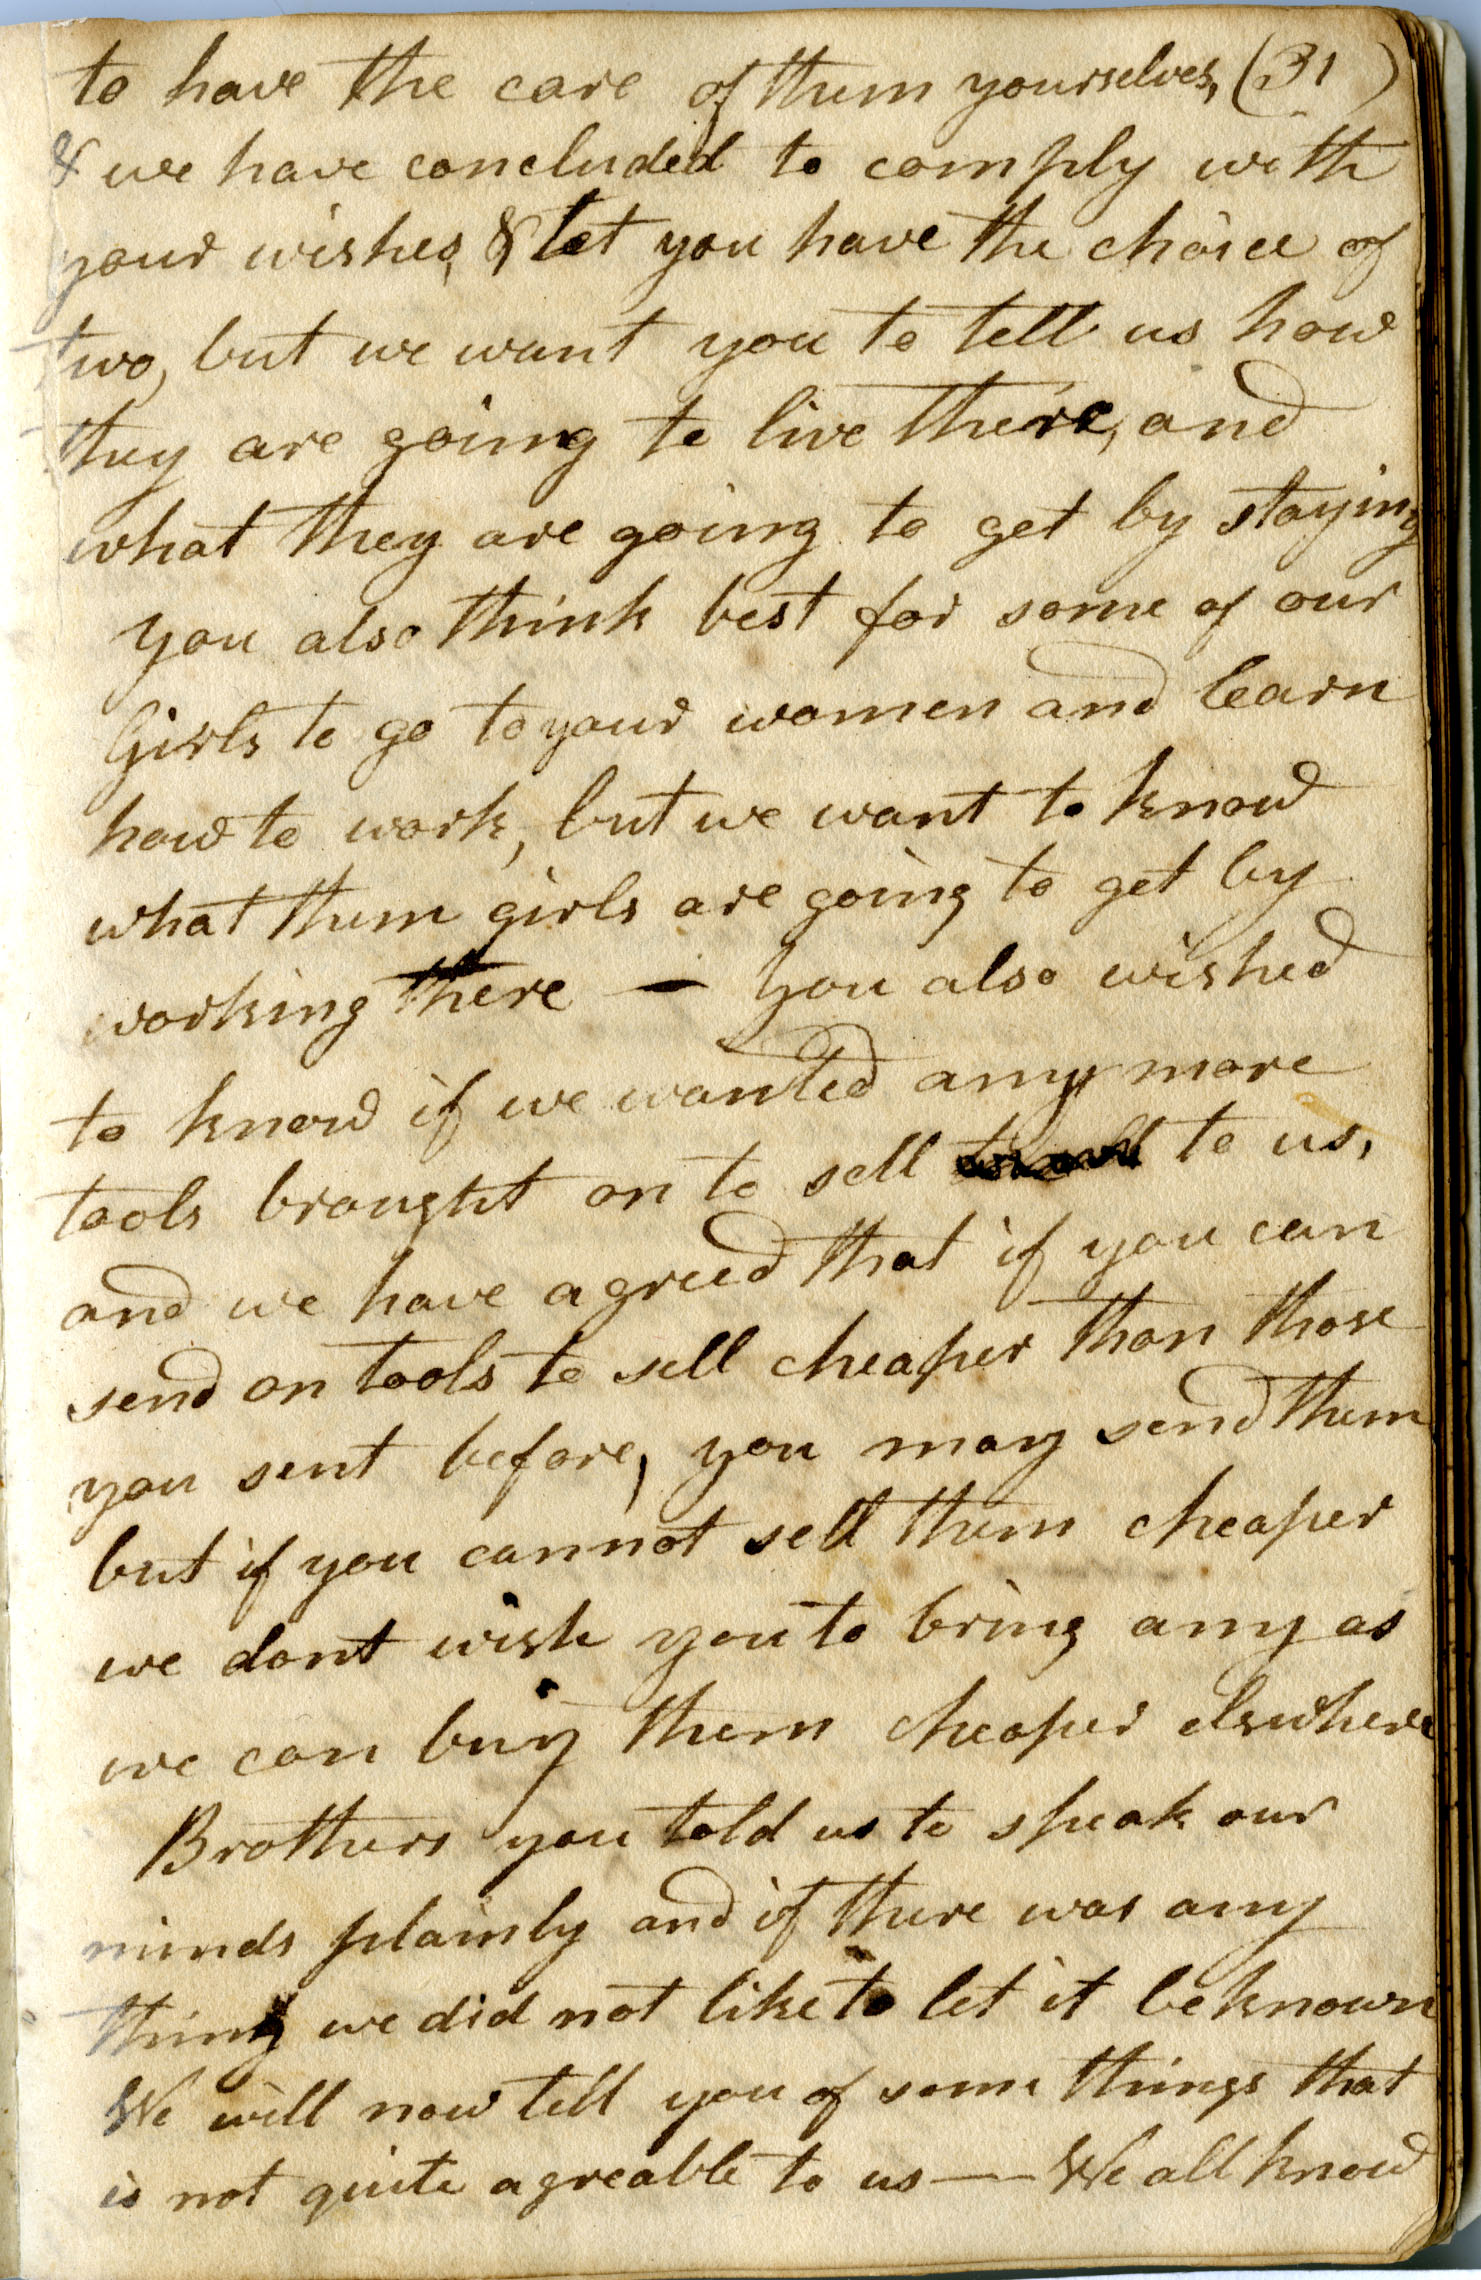 to have the care of them yourselves, (31)
& we have concluded to comply with
your wishes, & let you have the choice of
two, but we want you to tell us how
they are going to live there, and
what they are going to get by staying
you also think best for some of our
Girls to go to your women and learn
how to work, but we want to know
what them girls are going to get by
working there — You also wished
to know if we wanted any more
tools brought on to sell to us,
and we have agreed that if you can
send on tools to sell cheaper than those
you sent before, you may send them
but if you cannot sell them cheaper
we dont wish you to bring any as
we can buy them cheaper elswhere
Brothers you told us to speak our
minds plainly and if there was any
thing we did not like to let it be known
We will now tell you of some things that
is not quite agreable to us — We all know